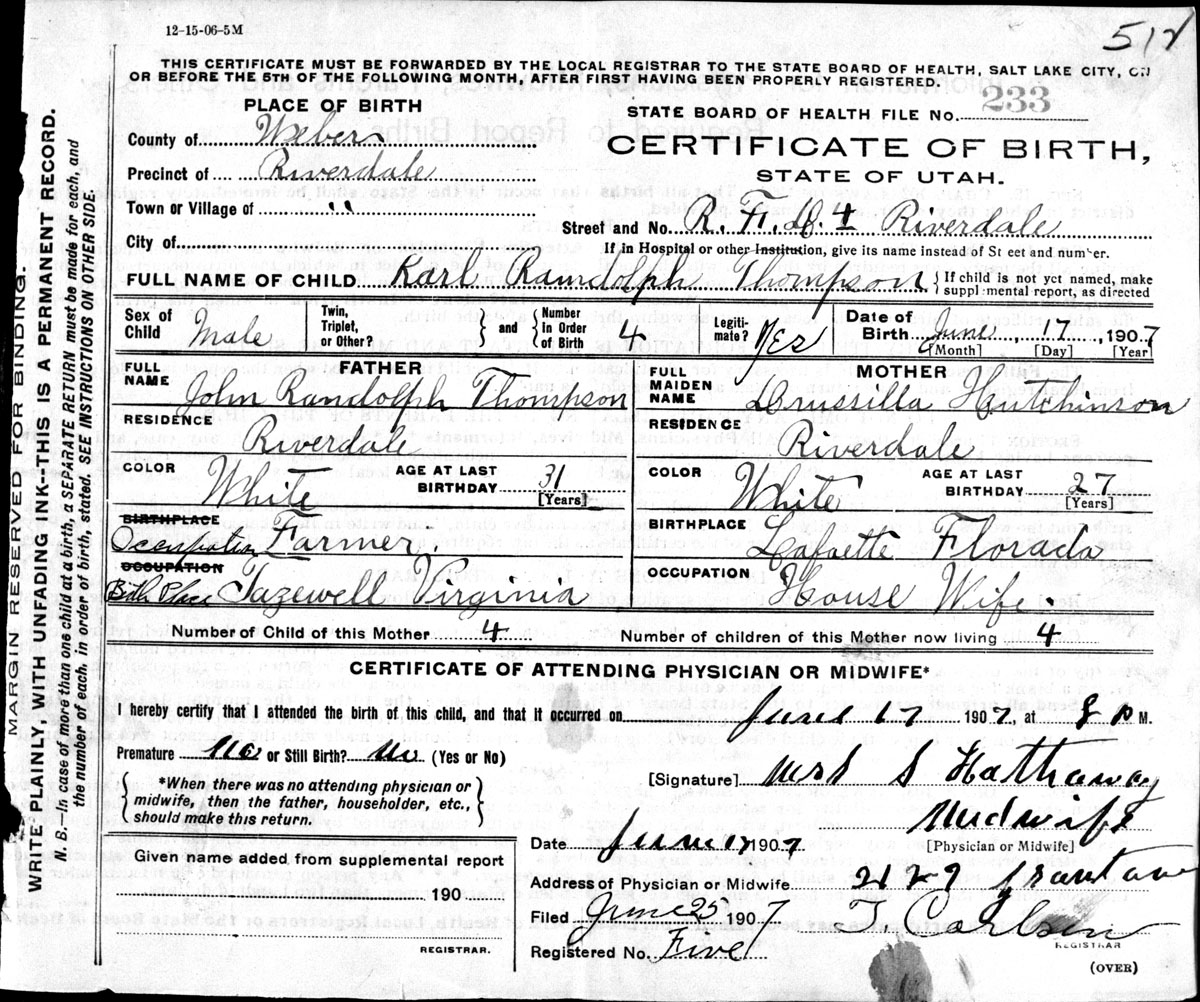 12-15-06-5M
512
THIS CERTIFICATE MUST BE FORWARDED BY THE LOCAL REGISTRAR TO THE STATE BOARD OF HEALTH, SALT LAKE CITY, ON
OR BEFORE THE 5TH OF THE FOLLOWING MONTH, AFTER FIRST HAVING BEEN PROPERLY REGISTERED.
PLACE OF BIRTH
STATE BOARD OF HEALTH FILE No. 233
County of Weber
CERTIFICATE OF BIRTH,
STATE OF UTAH.
Precinct of Riverdale
Town or Village of "
Street and No. R. F. D. 4 Riverdale
City of
If in Hospital or other Institution, give its name instead of St eet and number.
FULL NAME OF CHILD Karl Randolph Thompson { If child is not yet named, make suppl mental report, as directed
Sex of Child Male Twin, Triplet, or Other? } and { Number in Order of Birth 4 Legiti-mate? Yes Date of Birth June, 17, 1907
[Month] [Day] [Year]
FATHER
MOTHER
FULL NAME John Randolph Thompson
FULL MAIDEN NAME Drussilla Hutchinson
RESIDENCE Riverdale
RESIDENCE Riverdale
COLOR White AGE AT LAST BIRTHDAY 31 [Years]
COLOR White AGE AT LAST BIRTHDAY 27 [Years]
BIRTHPLACE
Occupation Farmer.
BIRTHPLACE Lafaette Florada
OCCUPATION
Birth Place Tazewell Virginia
OCCUPATION House Wife.
Number of Child of this Mother 4 Number of children of this Mother now living 4
CERTIFICATE OF ATTENDING PHYSICIAN OR MIDWIFE*
I hereby certify that I attended the birth of this child, and that it occurred on June 17 1907, at 8 P M.
Premature No or Still Birth? No (Yes or No)
[Signature] Mrs S Hathaway
{ *When there was no attending physician or
midwife, then the father, householder, etc.,
should make this return. }
Midwife
[Physician or Midwife]
Date June 17 1907
Given name added from supplemental report
190
REGISTRAR.
Address of Physician or Midwife 2129 Grant ave
Filed June 25 1907 T. Carlsen
REGISTRAR
Registered No. Five
(OVER)
MARGIN RESERVED FOR BINDING.
WRITE PLAINLY WITH UNFADING INK—THIS IS A PERMANENT RECORD.
N. B.—In case of more than one child at a birth, a SEPARATE RETURN must be made for each, and
the number of each, in order of birth, stated. SEE INSTRUCTIONS ON OTHER SIDE.